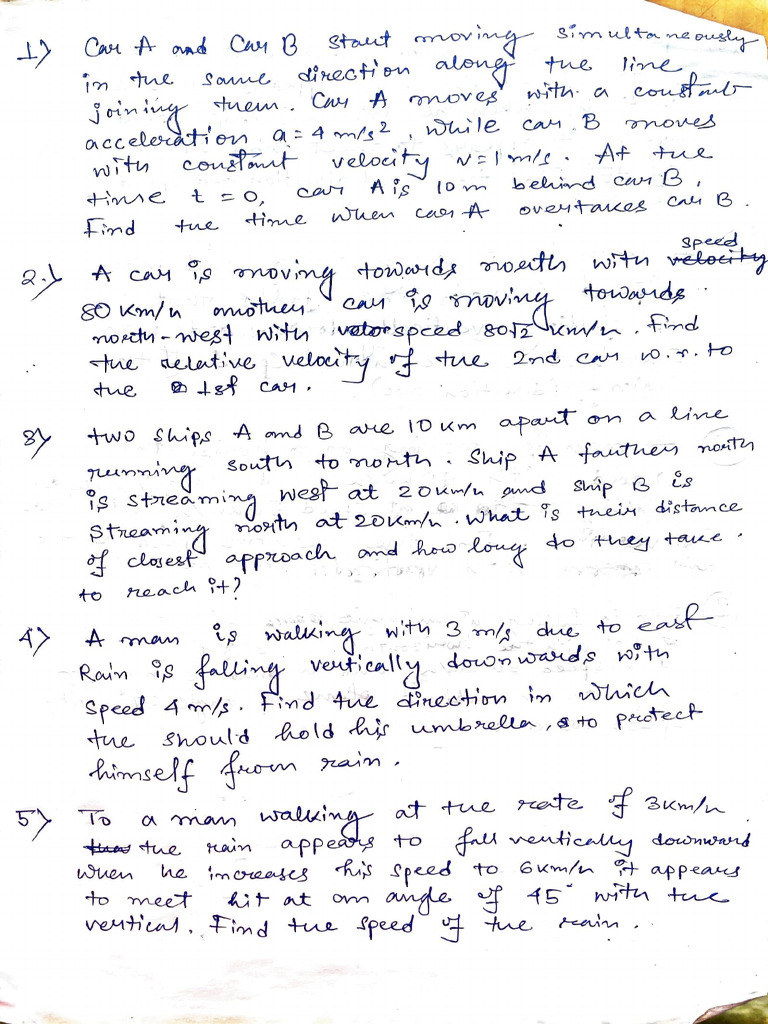 1) Car A and Car B start moving simultaneously
in the same direction along the line
joining them. Car A moves with a constant
acceleration a = 4 m/s², while car B moves
with constant velocity v = 1 m/s. At the
time t = 0, car A is 10 m behind car B.
Find the time when car A overtakes car B.
2.) A car is moving towards north with velocity speed
80 km/h another car is moving towards
north-west with speed 80√2 km/h. Find
the relative velocity of the 2nd car w.r. to
the 1st car.
3) two ships A and B are 10 km apart on a line
running south to north. Ship A farther north
is streaming west at 20 km/h and ship B is
streaming north at 20 km/h. What is their distance
of closest approach and how long do they take
to reach it?
4) A man is walking with 3 m/s due to east
Rain is falling vertically downwards with
speed 4 m/s. Find the direction in which
the should hold his umbrella, to protect
himself from rain.
5) To a man walking at the rate of 3 km/h
the rain appears to fall vertically downward
when he increases his speed to 6 km/h it appears
to meet hit at an angle of 45° with the
vertical. Find the speed of the rain.